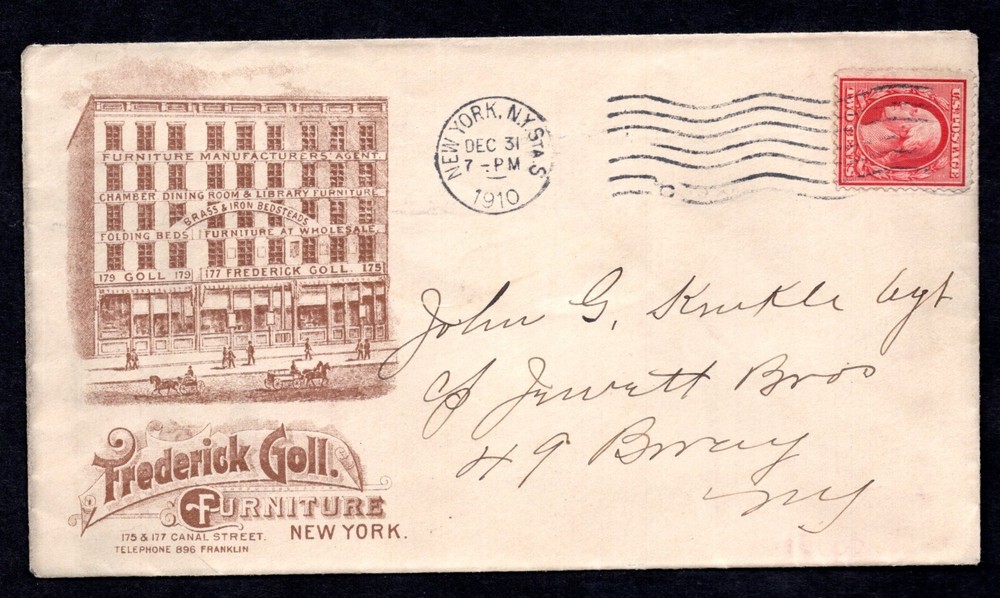 FURNITURE MANUFACTURERS' AGENT.
CHAMBER DINING ROOM & LIBRARY FURNITURE
BRASS & IRON BEDSTEADS
FOLDING BEDS FURNITURE AT WHOLESALE.
179 GOLL 179 177 FREDERICK GOLL. 175
Frederick Goll.
FURNITURE
NEW YORK.
175 & 177 CANAL STREET.
TELEPHONE 896 FRANKLIN
NEW YORK, N.Y. STA. S
DEC 31
7 - PM
1910
U.S. POSTAGE
TWO CENTS
John G. Kunkle Agt
c/o Jewett Bros
49 Bway
NY